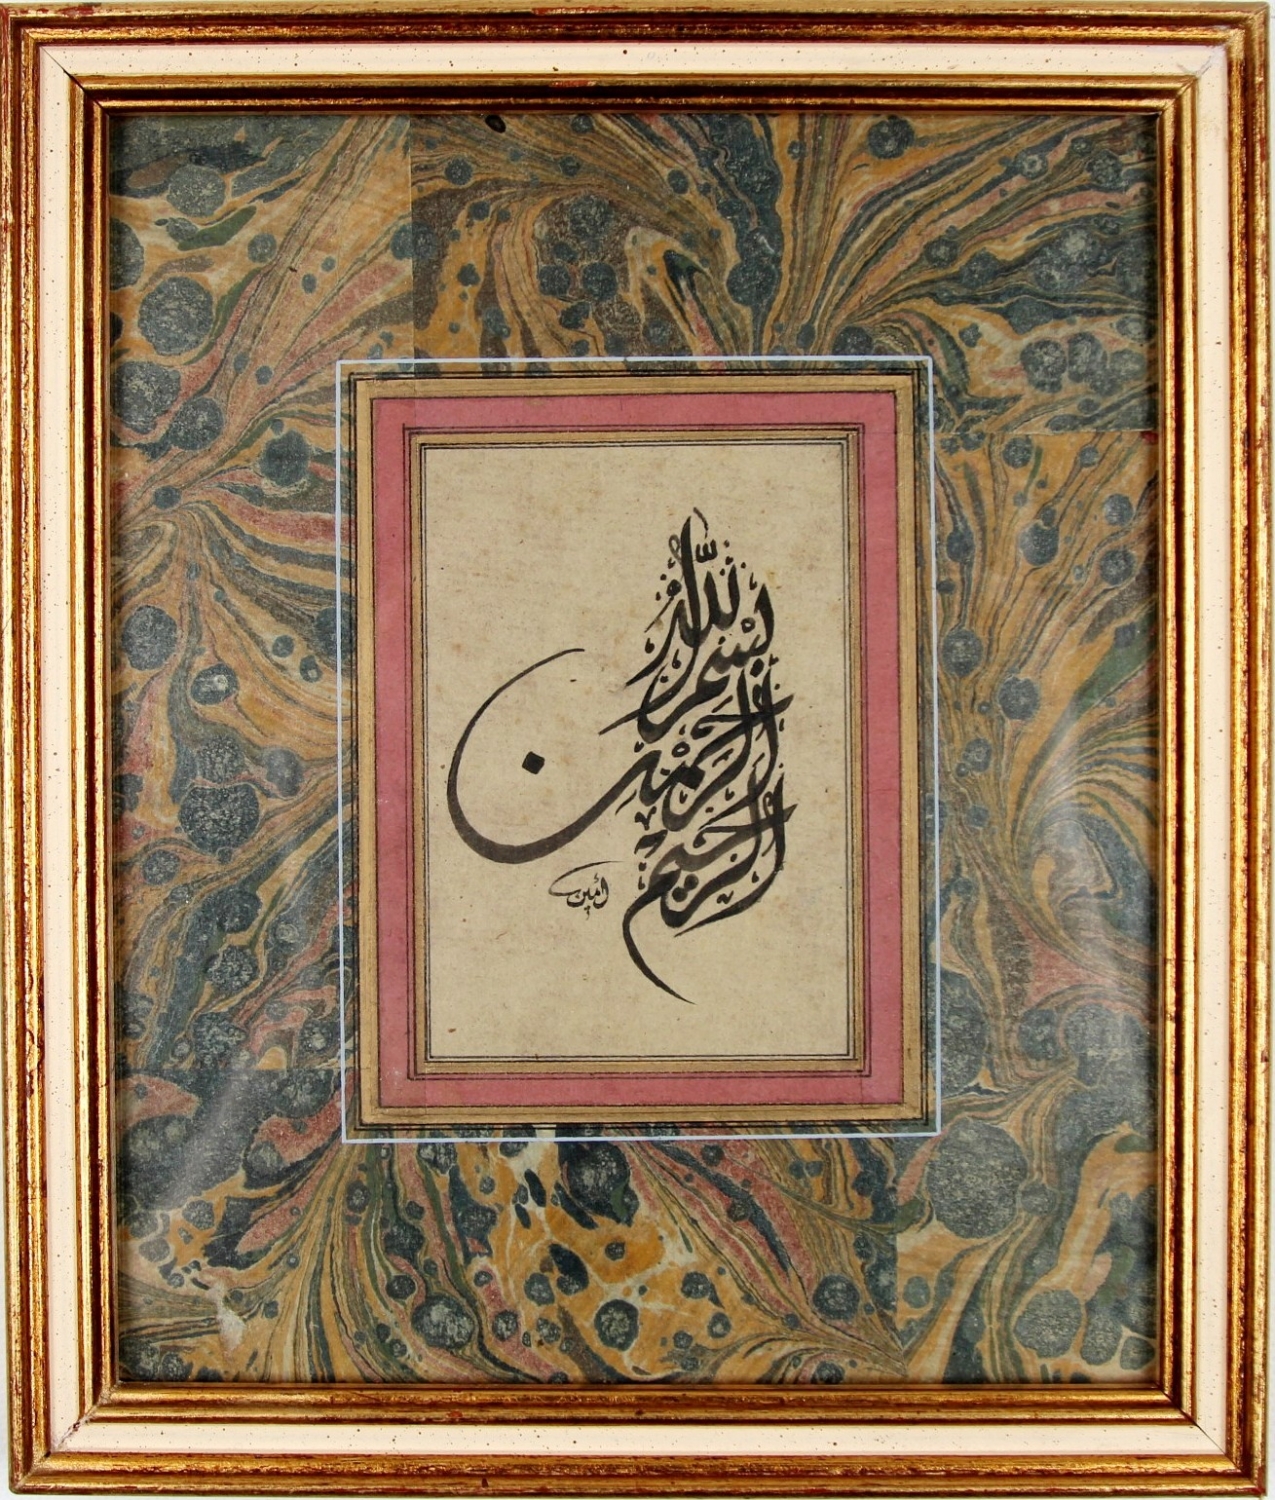 بسم الله
الرحمن
الرحيم
أمين